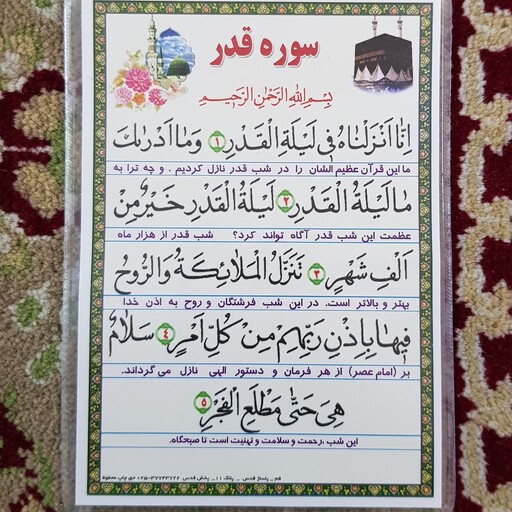 سوره قدر
بِسْمِ اللهِ الرَّحْمٰنِ الرَّحیمِ
اِنّٰا اَنْزَلْنٰاهُ فی لَیْلَةِ الْقَدْرِ ۱ وَمٰا اَدْرٰیكَ
ما این قرآن عظیم الشان را در شب قدر نازل کردیم . و چه ترا به
مٰا لَیْلَةُ الْقَدْرِ ۲ لَیْلَةُ الْقَدْرِ خَیْرٌ مِنْ
عظمت این شب قدر آگاه تواند کرد؟ شب قدر از هزار ماه
اَلْفِ شَهْرٍ ۳ تَنَزَّلُ الْمَلٰائِکَةُ وَالرُّوحُ
بهتر و بالاتر است. در این شب فرشتگان و روح به اذن خدا
فیهٰا بِاِذْنِ رَبِّهِمْ مِنْ کُلِّ اَمْرٍ ۴ سَلٰامٌ
بر (امام عصر) از هر فرمان و دستور الهی نازل می گرداند.
هِیَ حَتّٰی مَطْلَعِ الْفَجْرِ ۵
این شب ،رحمت و سلامت و تهنیت است تا صبحگاه.
قم _ پاساژ قدس _ پلاک ۱۱ _ پخش قدس ۳۷۷۴۳۷۶۶-۰۲۵ حق چاپ محفوظ